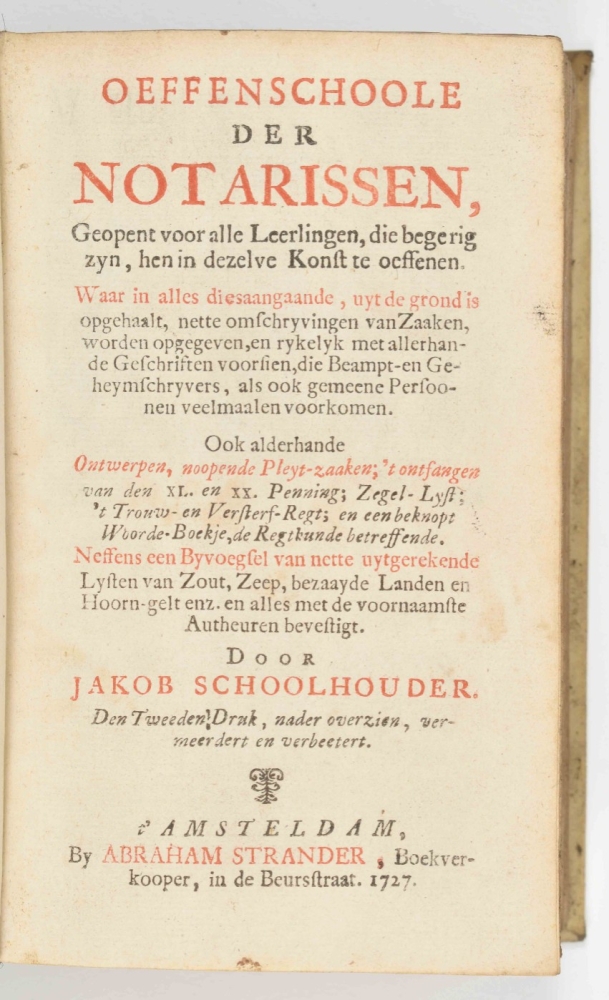 OEFFENSCHOOLE
DER
NOTARISSEN,
Geopent voor alle Leerlingen, die begerig
zyn, hen in dezelve Konſt te oeffenen.
Waar in alles diesaangaande, uyt de grond is
opgehaalt, nette omſchryvingen van Zaaken,
worden opgegeven, en rykelyk met allerhan-
de Geſchriften voorſien, die Beampt-en Ge-
heymſchryvers, als ook gemeene Perſoo-
nen veelmaalen voorkomen.
Ook alderhande
Ontwerpen, noopende Pleyt-zaaken; 't ontfangen
van den XL. en XX. Penning; Zegel-Lyſt;
't Trouw- en Verſterf-Regt; en een beknopt
Woorde-Boekje, de Regtkunde betreffende.
Neffens een Byvoegſel van nette uytgerekende
Lyſten van Zout, Zeep, bezaayde Landen en
Hoorn-gelt enz. en alles met de voornaamſte
Autheuren beveſtigt.
DOOR
JAKOB SCHOOLHOUDER.
Den Tweeden Druk, nader overzien, ver-
meerdert en verbeetert.
t' AMSTELDAM,
By ABRAHAM STRANDER, Boekver-
kooper, in de Beursſtraat. 1727.